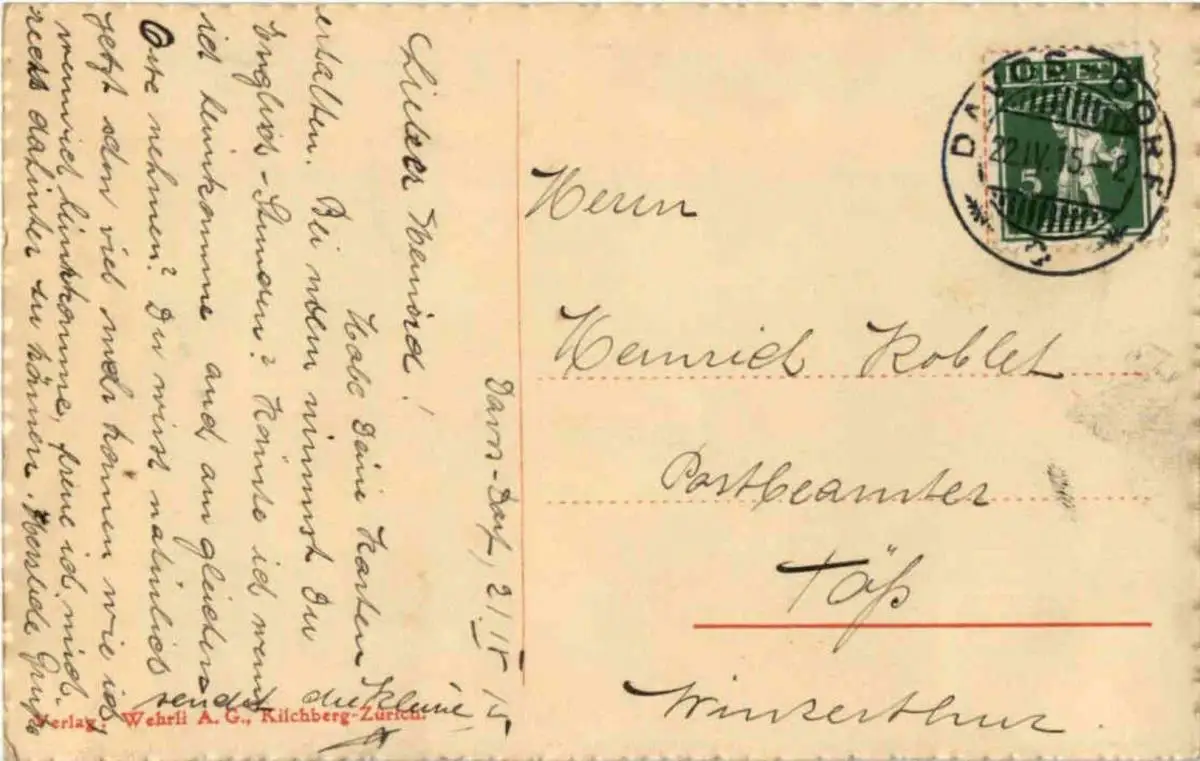 Davos-Dorf, 21 IV 15
Lieber Heinrich!
Habe Deine Karten
erhalten. Bei wem nimmst Du
Englisch-Stunden? Könnte ich wenn
ich heimkomme auch am gleichen
Orte nehmen? Du wirst natürlich
jetzt schon viel mehr können wie ich,
wenn ich heimkomme, freue ich mich
dahinter zu können. Herzliche Grüsse
sendet die Kleine
Herrn
Heinrich Koblet
Postbeamter
Töß
Winterthur.
DAVOS-DORF
22.IV.15
5
Verlag: Wehrli A. G., Kilchberg-Zürich.